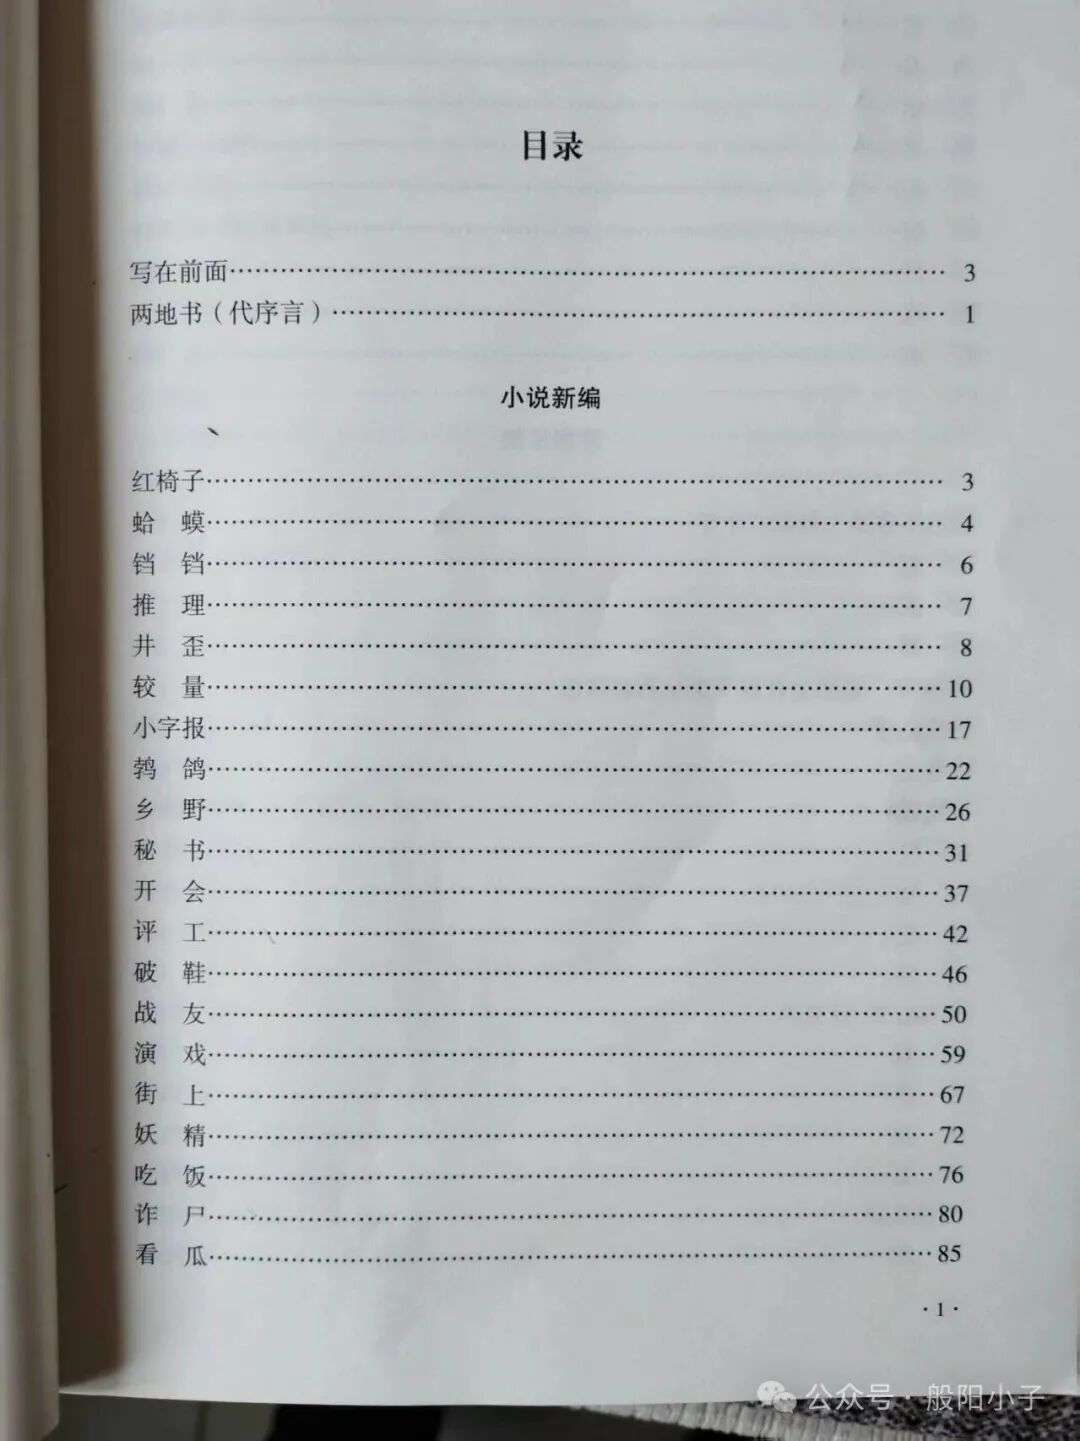 目录
写在前面 3
两地书（代序言） 1
小说新编
红椅子 3
蛤 蟆 4
铛 铛 6
推 理 7
井 歪 8
较 量 10
小字报 17
鹁 鸽 22
乡 野 26
秘 书 31
开 会 37
评 工 42
破 鞋 46
战 友 50
演 戏 59
街 上 67
妖 精 72
吃 饭 76
诈 尸 80
看 瓜 85
·1·
公众号·般阳小子